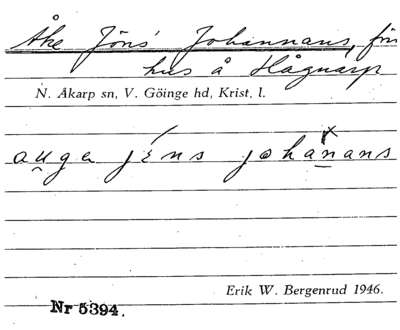 Åke Jöns Johannans, för
hus å Hågnarp
N. Åkarp sn, V. Göinge hd, Krist. l.
au̯ga jéns johänans
Erik W. Bergenrud 1946.
Nr 5394.